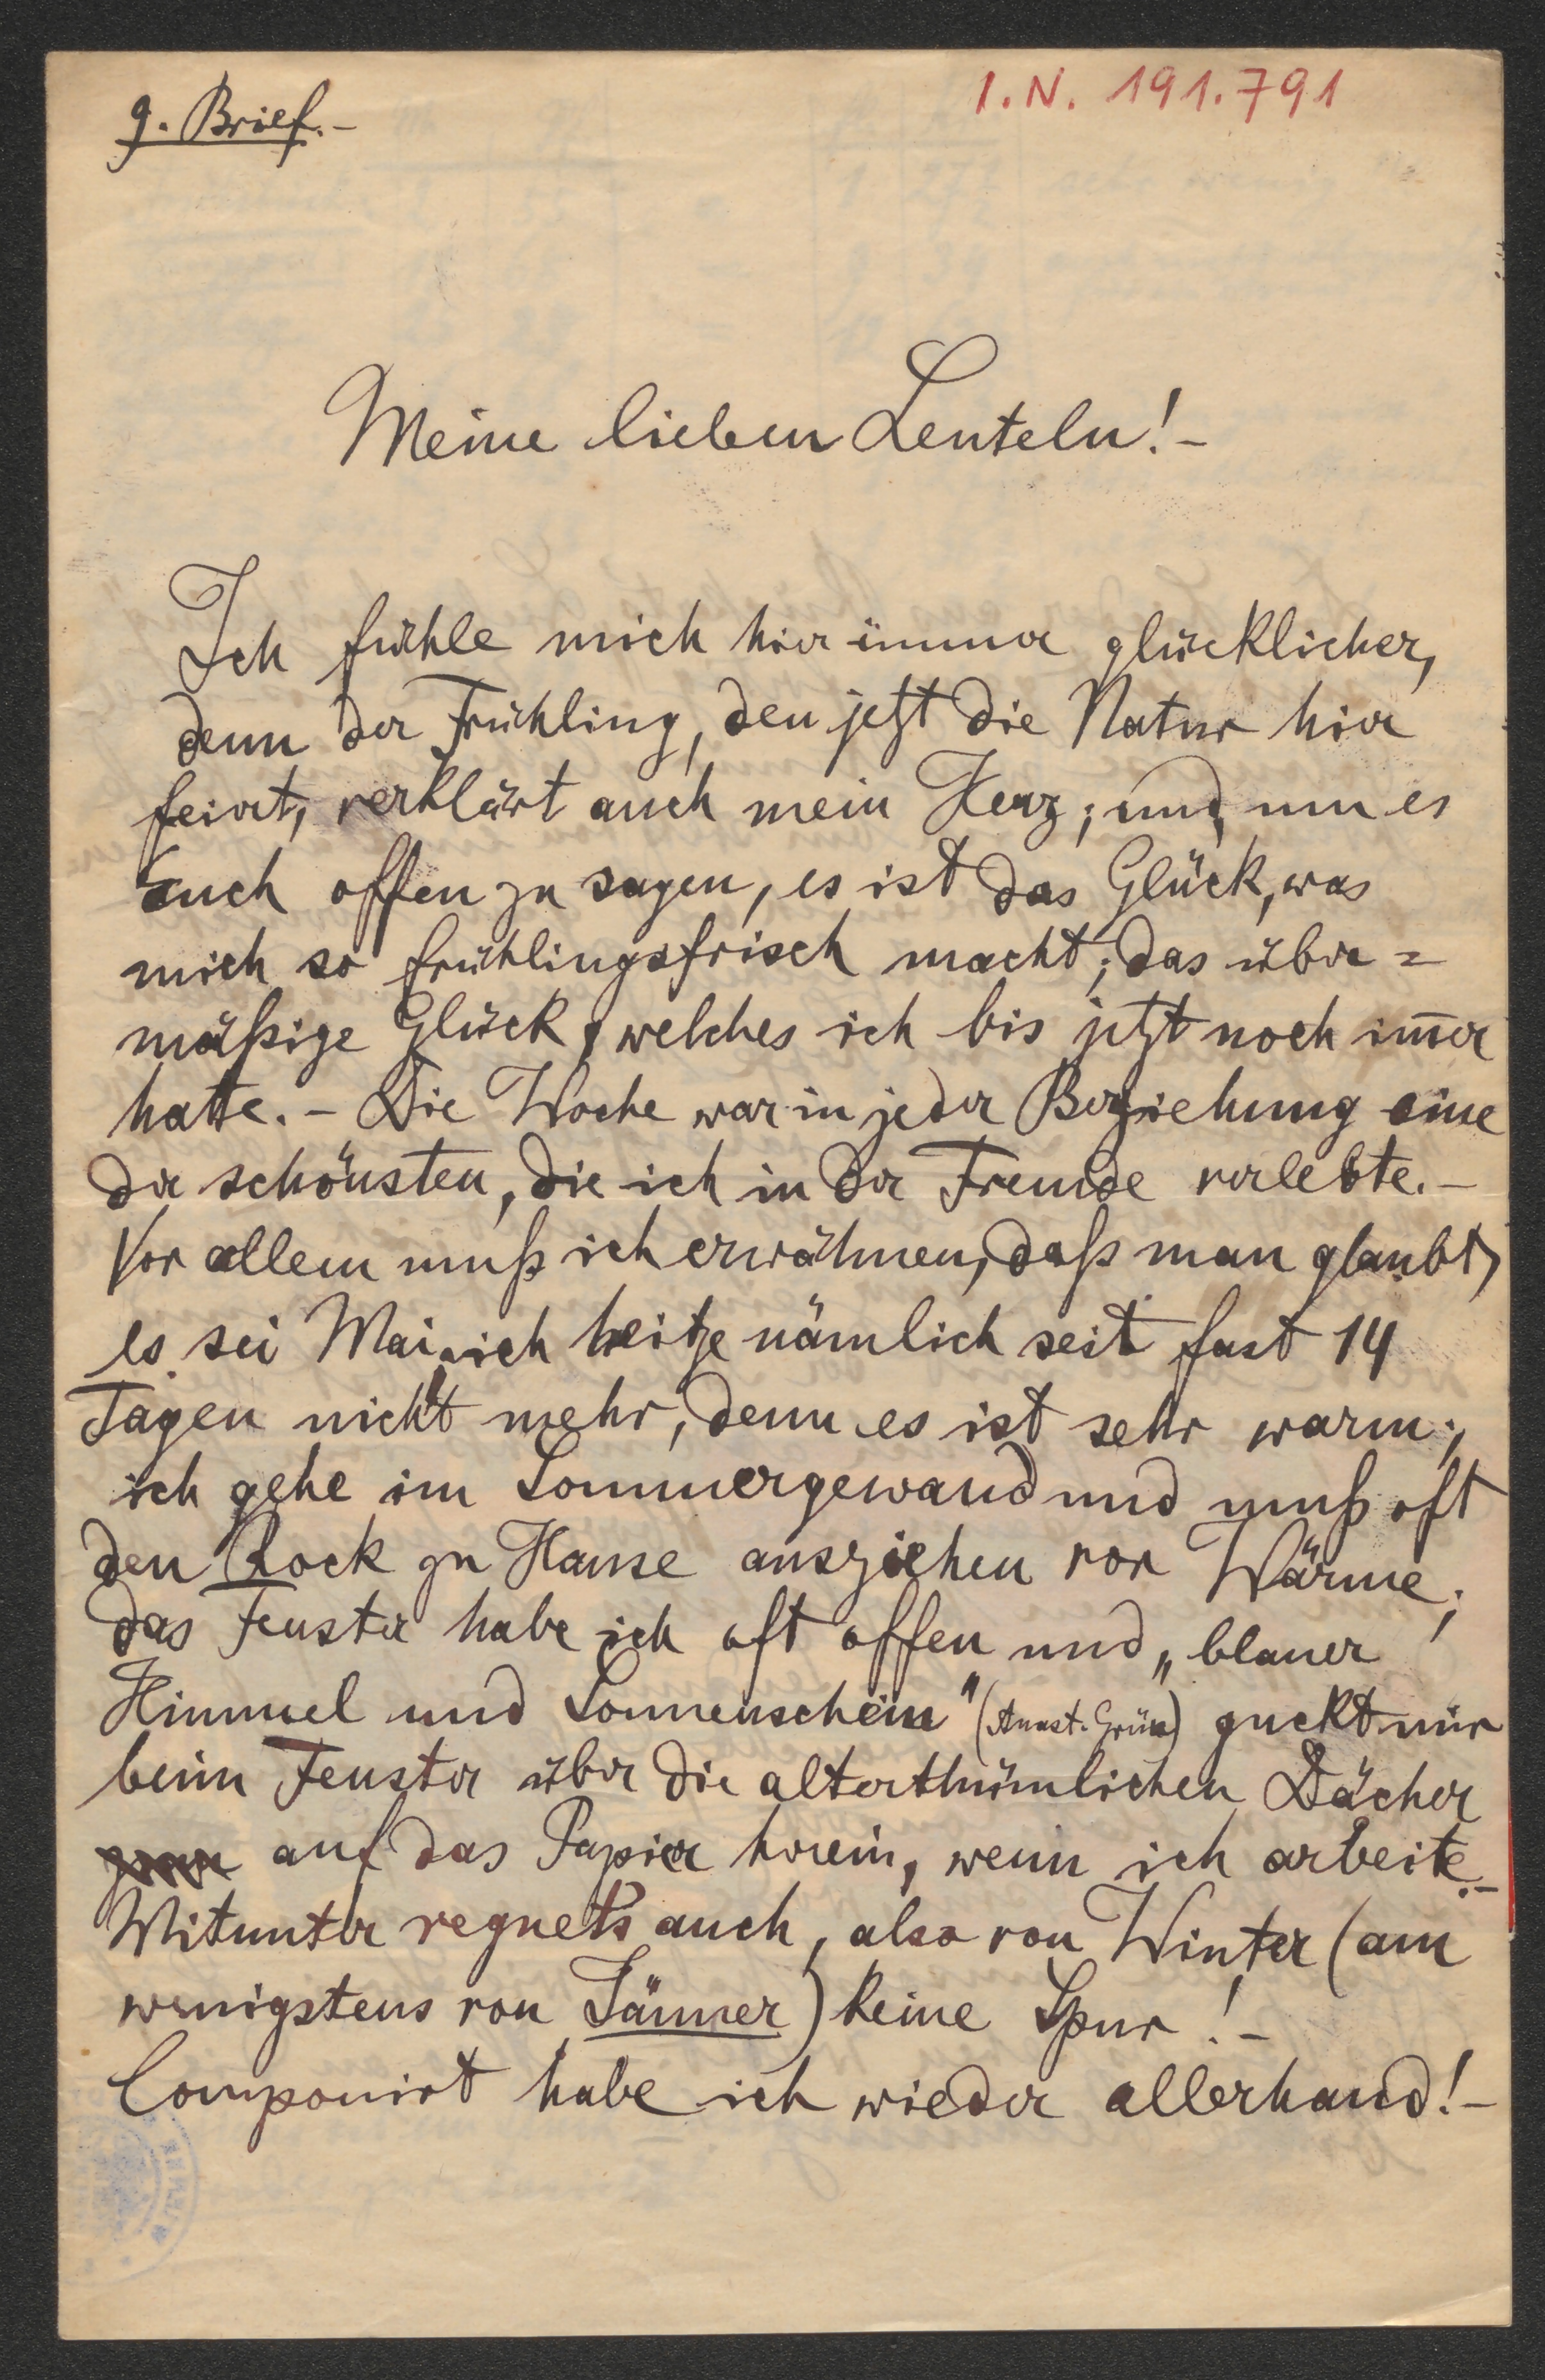 9. Brief.-
I.N. 191.791
Meine lieben Leuteln!-
Ich fühle mich hier immer glücklicher,
denn der Frühling, den jetzt die Natur hier
feiert, verklärt auch mein Herz; und um es
Euch offen zu sagen, es ist das Glück, was
mich so frühlingsfrisch macht; das über=
mäßige Glück, welches ich bis jetzt noch im̅er
hatte.- Die Woche war in jeder Beziehung eine
der schönsten, die ich in der Fremde verlebte.-
Vor allem muß ich erwähnen, daß man glaubt,
es sei Mai; ich heitze nämlich seit fast 14
Tagen nicht mehr, denn es ist sehr warm;
ich gehe im Sommergewand und muß oft
den Rock zu Hause ausziehen vor Wärme;
das Fenster habe ich oft offen und „blauer
Himmel und Sonnenschein" (Anast. Grün) guckt mir
beim Fenster über die alterthümlichen Dächer
auf das Papier herein, wenn ich arbeite.-
Mitunter regnet's auch, also von Winter (am
wenigstens von Jänner) keine Spur!-
Componirt habe ich wieder allerhand!-